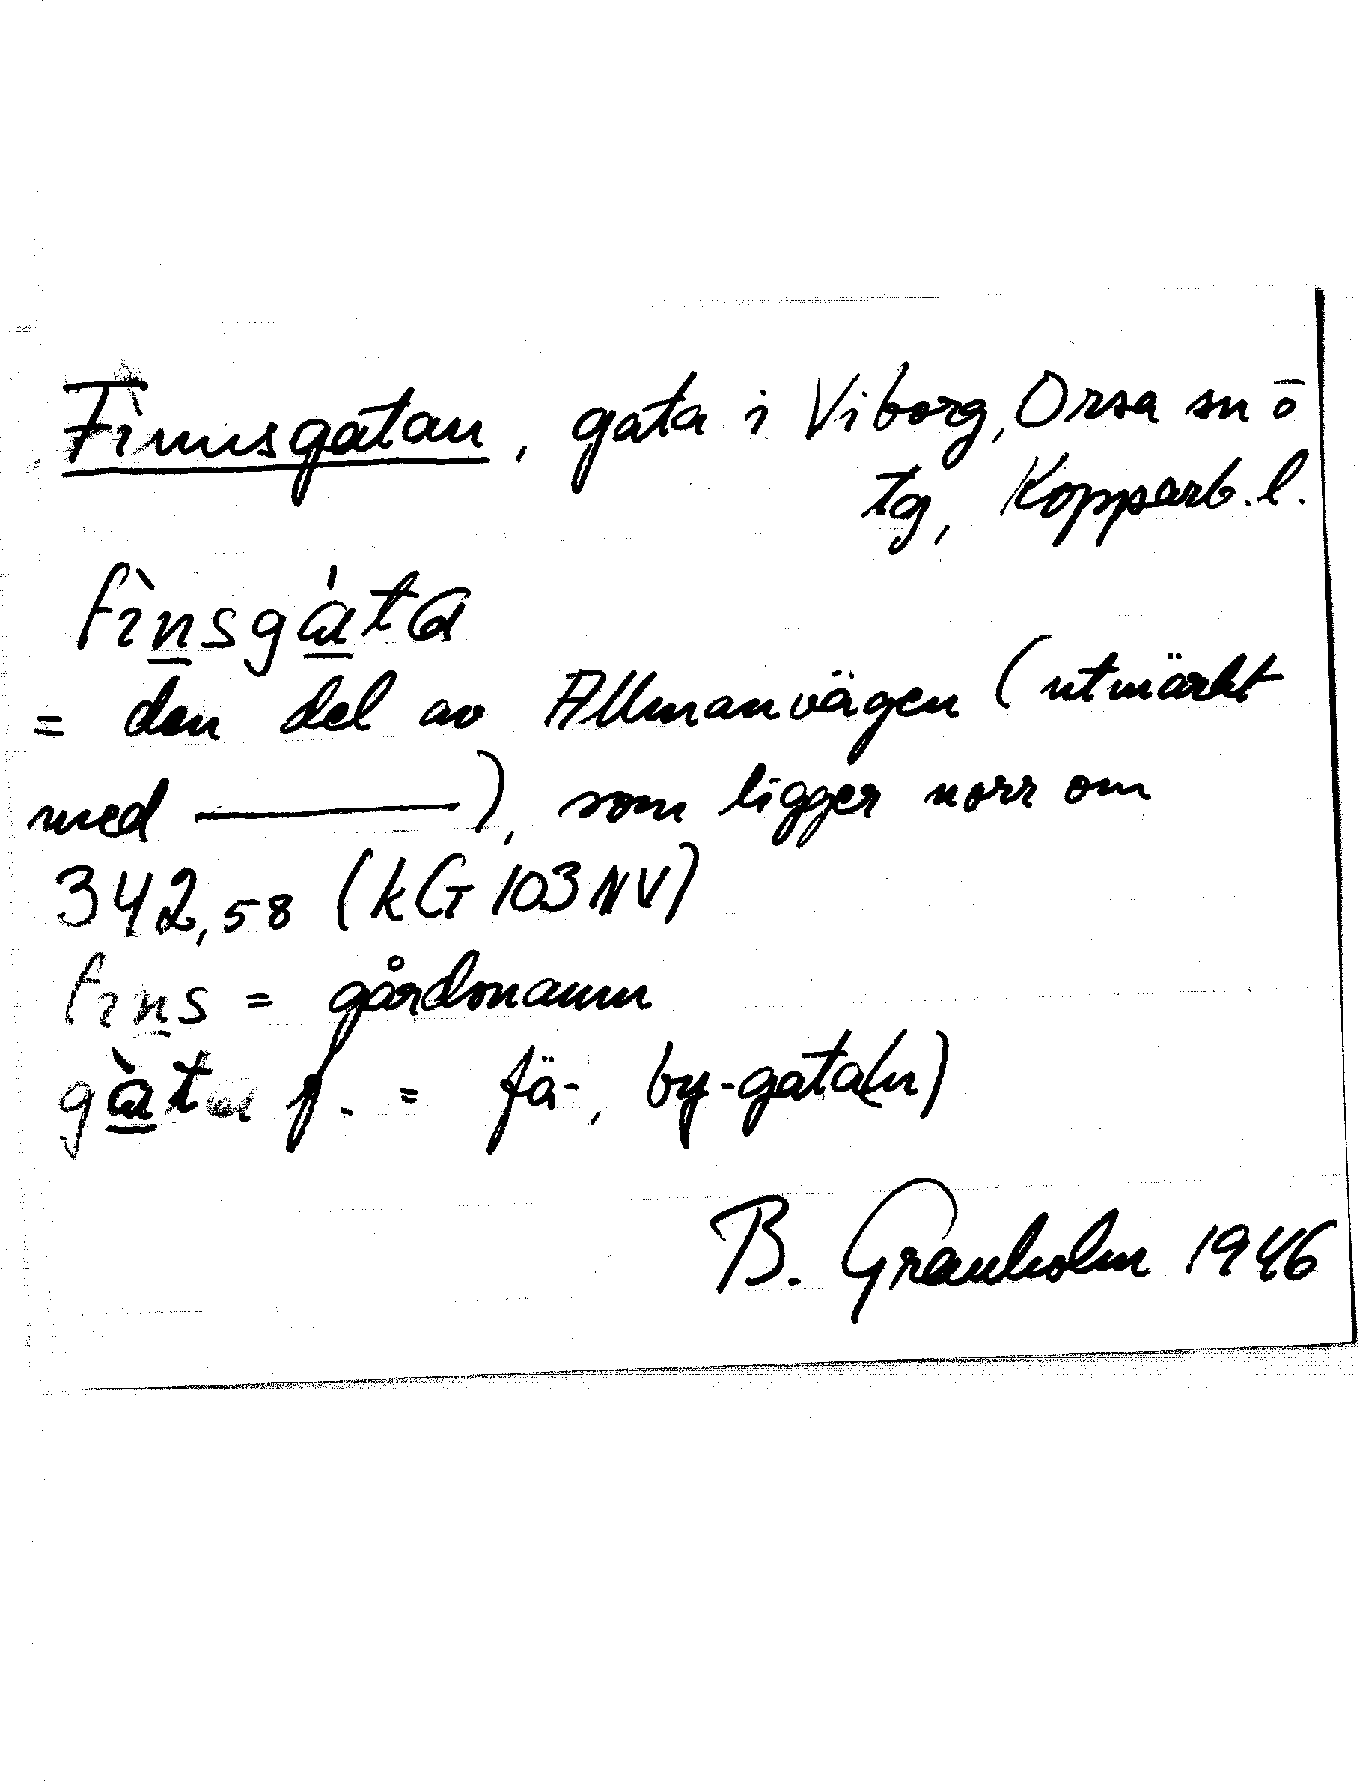 Finnsgatan, gata i Viborg, Orsa sn ō
tg, Kopparb. l.
fìnsgáta
= den del av Allmanvägen (utmärkt
med ———), som ligger norr om
342,58 (kG 103 NV)
fins = gårdsnamn
gàta f. = fä-, by-gata(n)
B. Granholm 1946